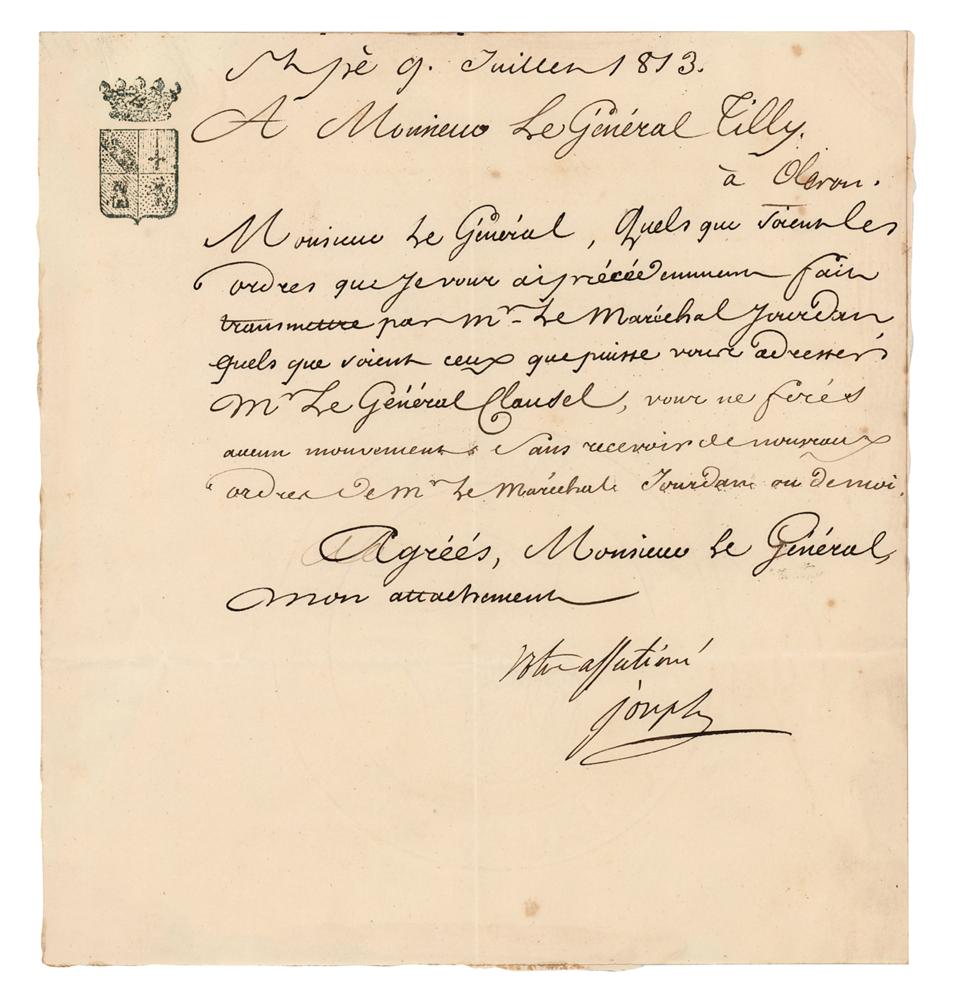 St pè 9. Juillet 1813.
A Monsieur Le Général Tilly.
à Oleron.
Monsieur Le Général, Quels que soient les
ordres que Je vous ai précédemment fait
transmettre par Mr. Le Maréchal Jourdan
quels que soient ceux que puisse vous adresser
Mr Le Général Clausel, vous ne ferés
aucun mouvement sans recevoir de nouveaux
ordres de Mr Le Maréchal Jourdan ou de moi.
Agréés, Monsieur Le Général,
mon attachement
Votre affectioné
joseph